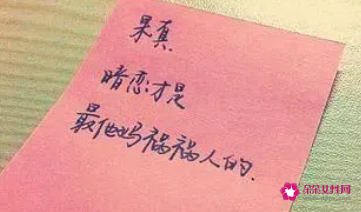 果真
暗恋才是
最他妈祸祸人的.
朵朵女性网